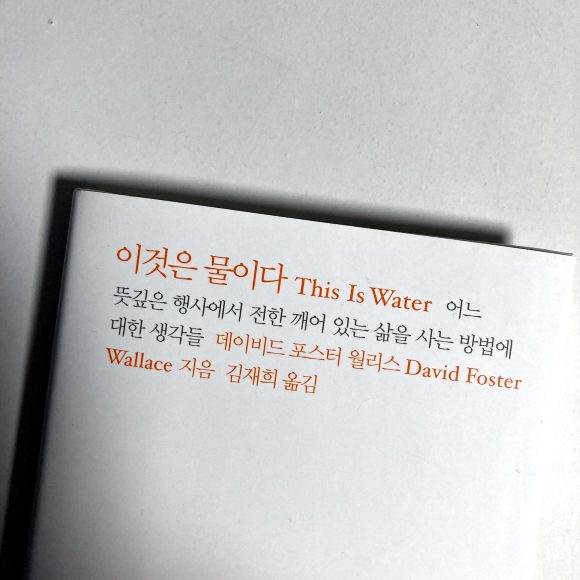 이것은 물이다 This Is Water 어느
뜻깊은 행사에서 전한 깨어 있는 삶을 사는 방법에
대한 생각들 데이비드 포스터 월리스 David Foster
Wallace 지음 김재희 옮김